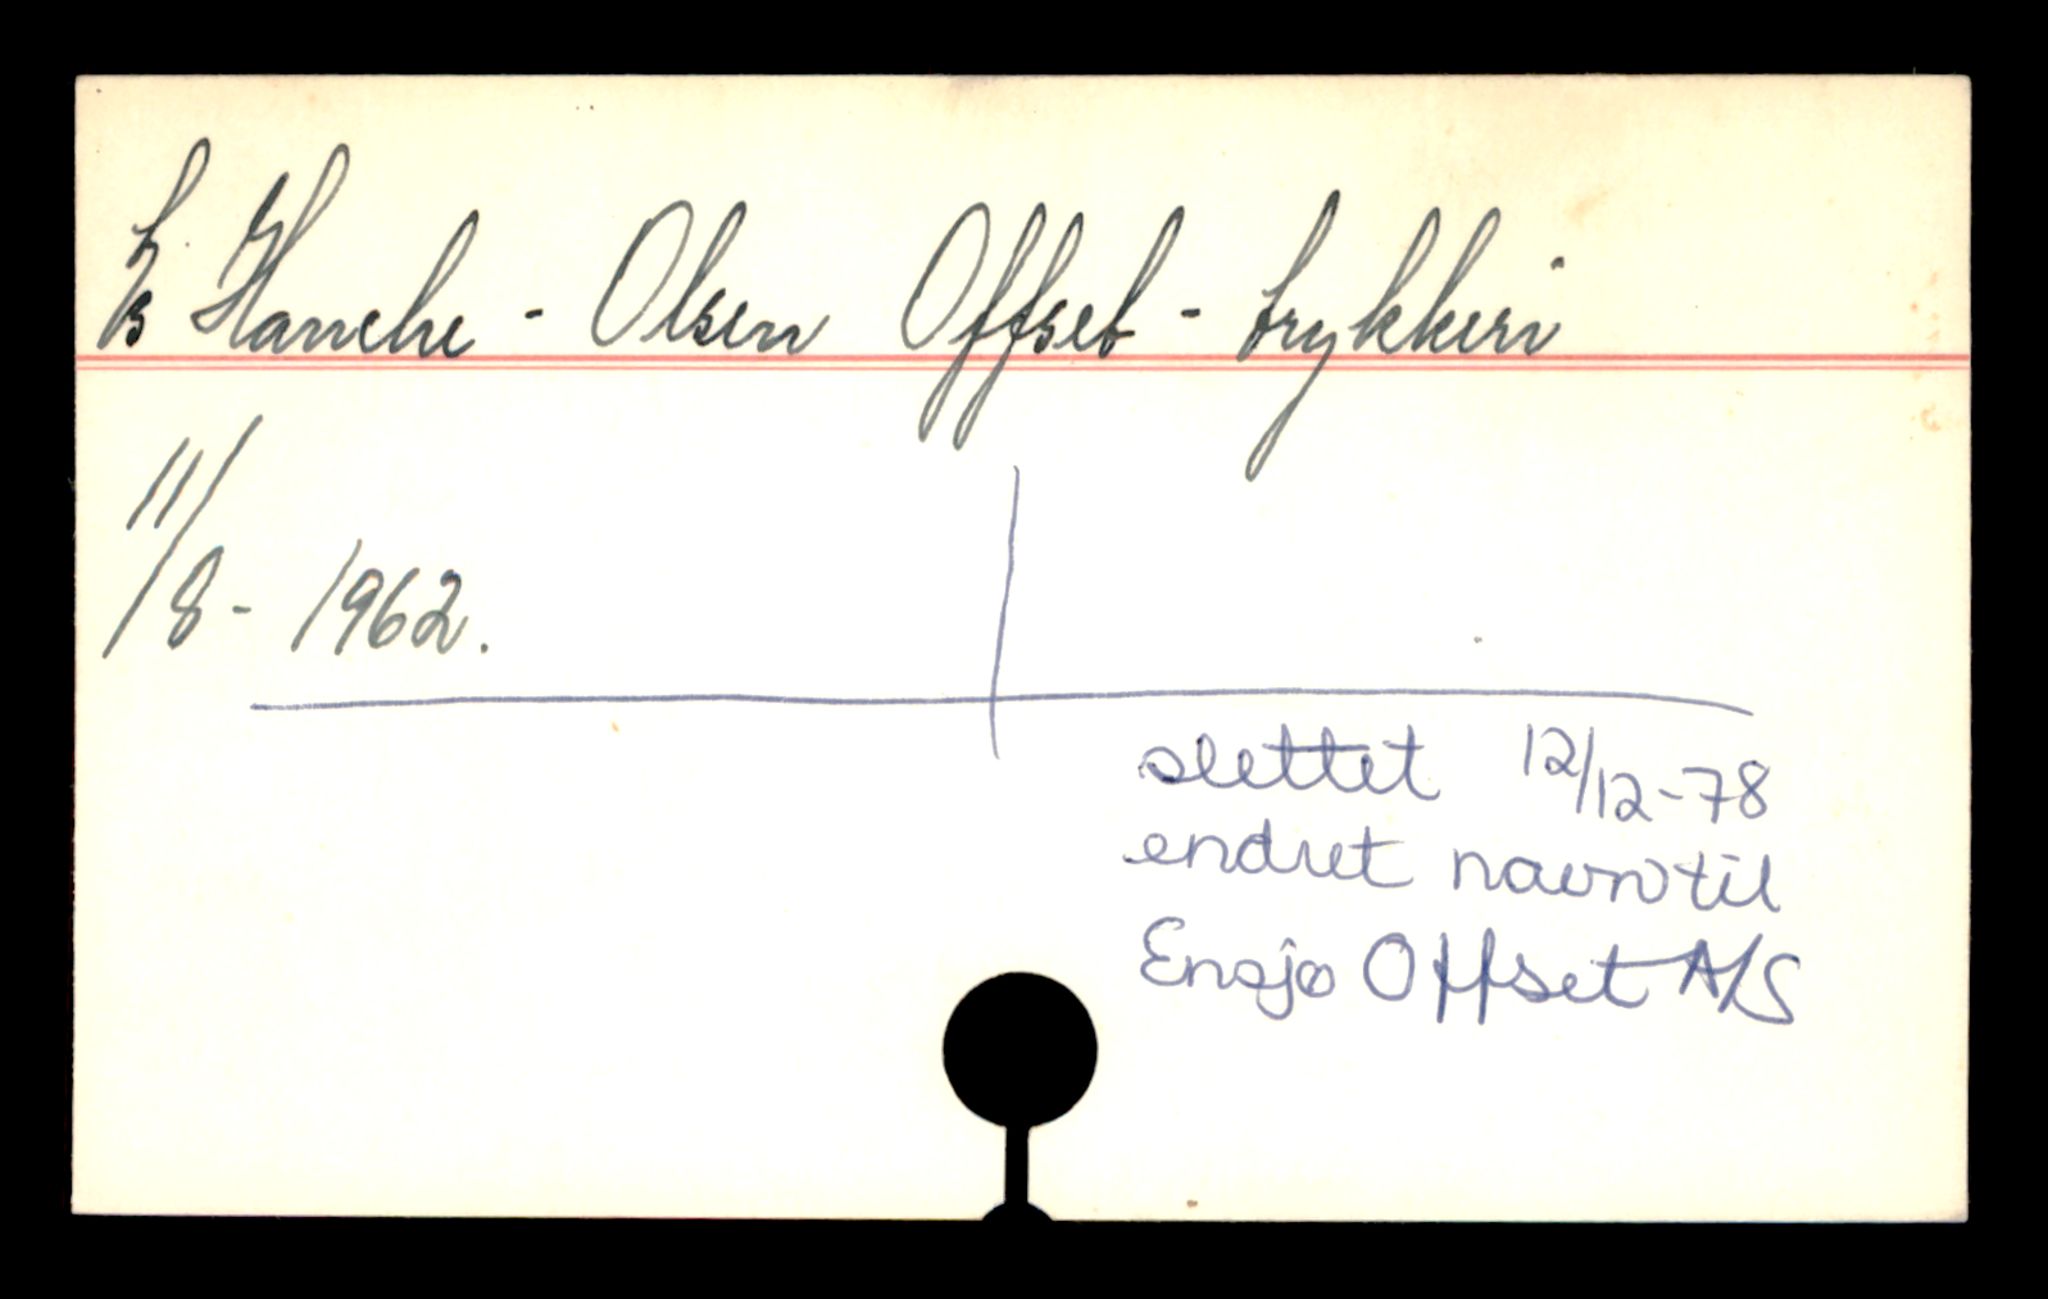 Hanche - Olsen Offset - trykkeri
11/8 - 1962.
slettet 12/12-78
endret navn til
Ensjø Offset A/S